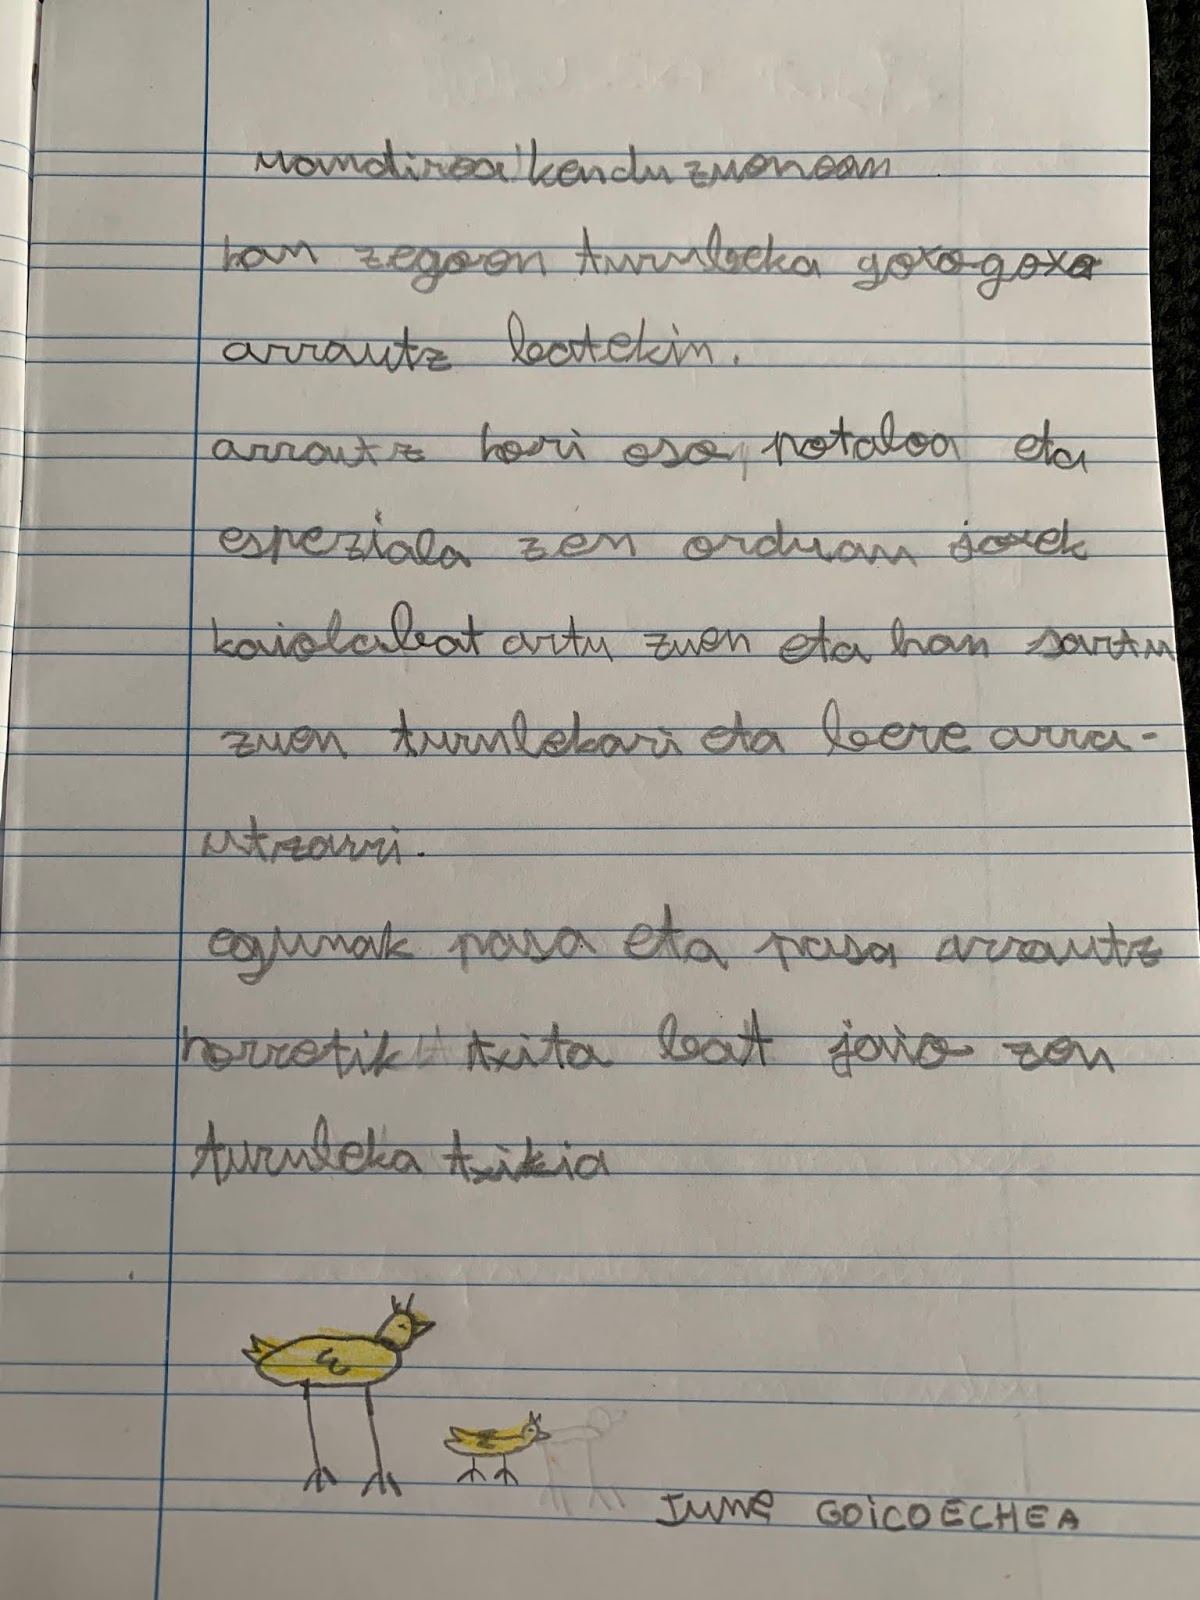 mandirea kendu zuenean
han zegoen turuleka goxo goxo
arrautz batekin.
arrautz hori oso, potaloa eta
espeziala zen orduan joxek
kaiola bat artu zuen eta han sartu
zuen turulekari eta bere arra-
utzarri.
egunak pasa eta pasa arrautz
horretik txita bat jaio zen
turuleka txikia
JUNE GOICOECHEA